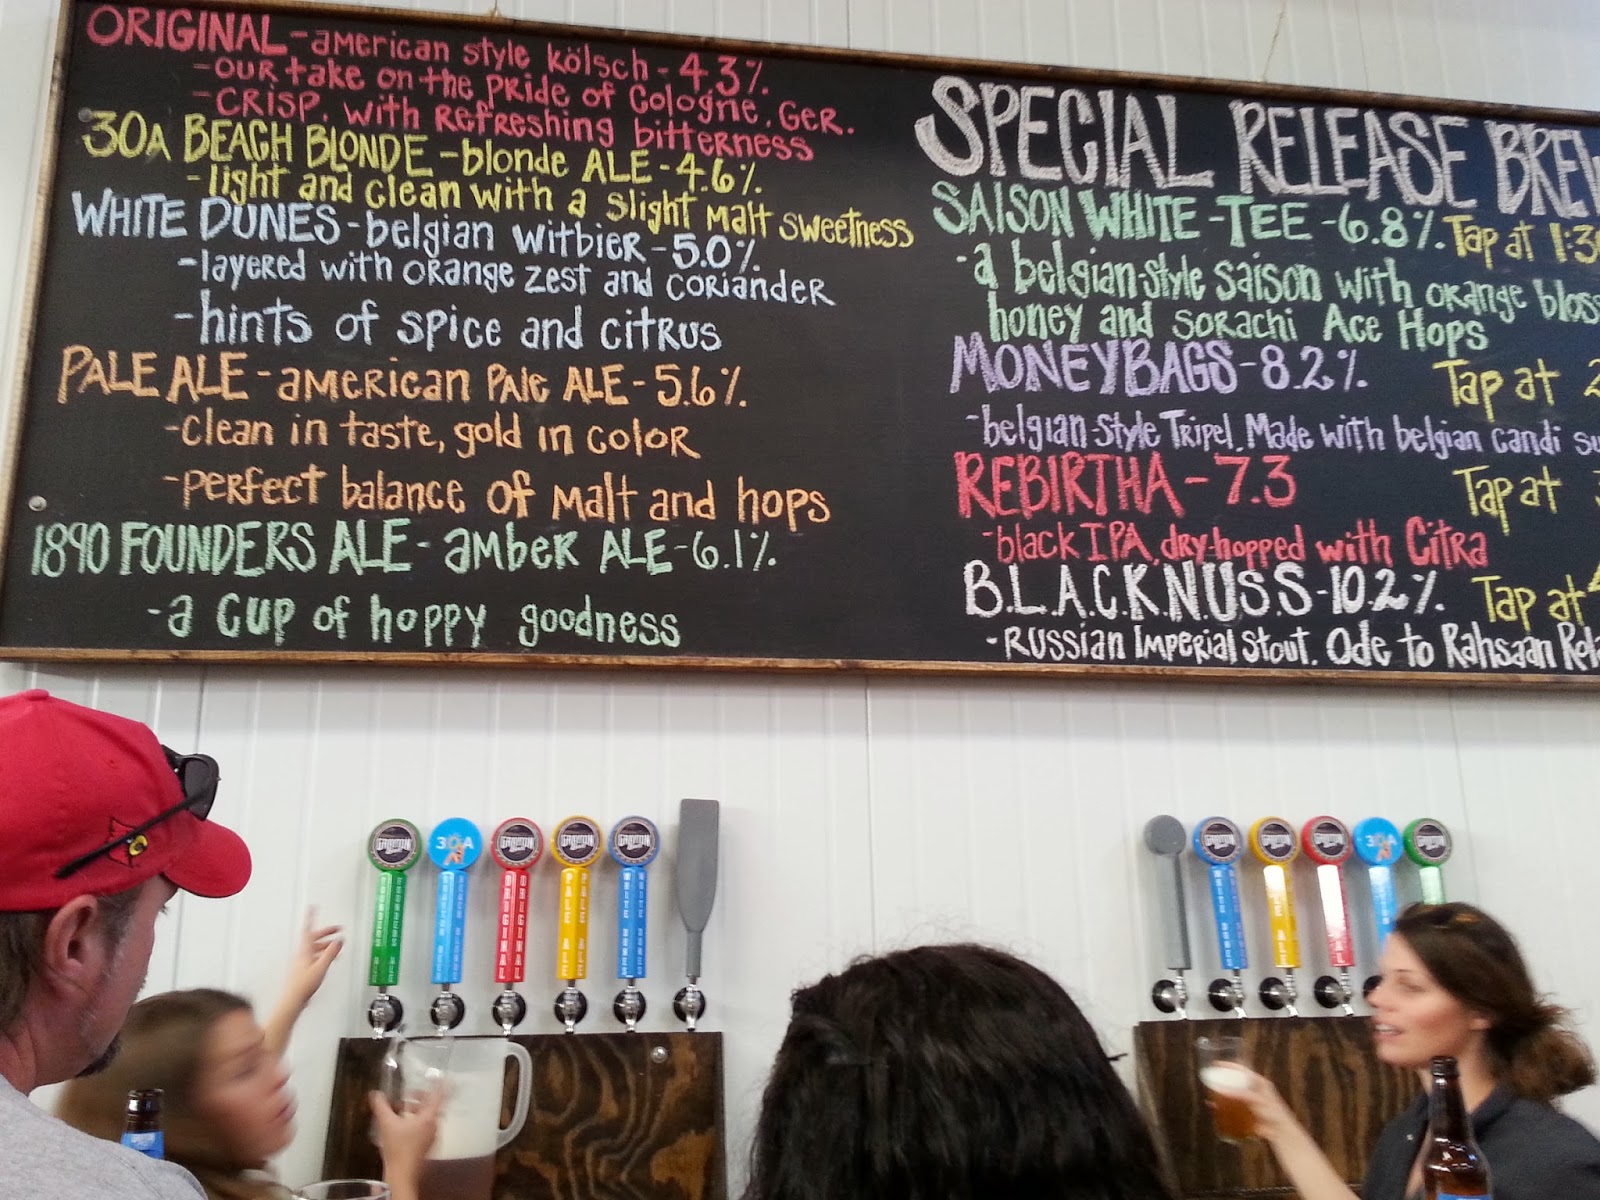 ORIGINAL - american style kölsch - 4.3%.
- our take on the pride of Cologne, Ger.
- crisp, with refreshing bitterness
30A BEACH BLONDE - blonde ALE - 4.6%.
- light and clean with a slight malt sweetness
WHITE DUNES - belgian witbier - 5.0%.
- layered with orange zest and coriander
- hints of spice and citrus
PALE ALE - american pale ALE - 5.6%.
- clean in taste, gold in color
- perfect balance of malt and hops
1890 FOUNDERS ALE - amber ALE - 6.1%.
- a cup of hoppy goodness
SPECIAL RELEASE BREW
SAISON WHITE-TEE - 6.8%. Tap at 1:3
- a belgian-style saison with orange bloss
honey and sorachi Ace Hops
MONEYBAGS - 8.2%. Tap at 2
- belgian-style Tripel. Made with belgian candi su
REBIRTHA - 7.3 Tap at 3
- black IPA, dry-hopped with Citra
B.L.A.C.K.N.U.S.S - 10.2%. Tap at 4
- Russian Imperial Stout. Ode to Rahsaan Rola
30A
ORIGINAL
ORIGINAL
PALE ALE
PALE ALE
WHITE DUNES
WHITE DUNES
30A